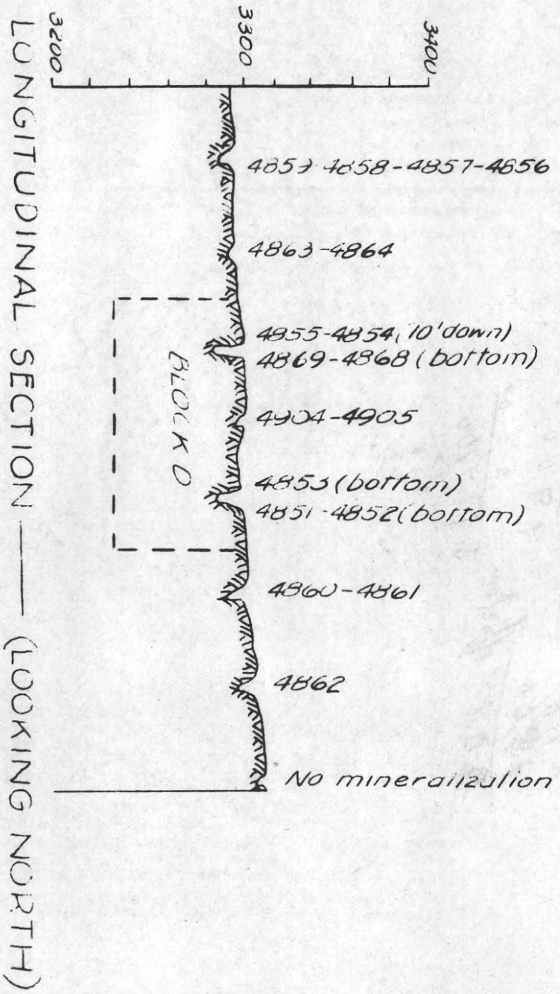 3400
3300
3200
4859-4858-4857-4856
4863-4864
4855-4854 (10' down)
4869-4868 (bottom)
4904-4905
4853 (bottom)
4851-4852 (bottom)
4860-4861
4862
No mineralization
BLOCK D
LONGITUDINAL SECTION — (LOOKING NORTH)